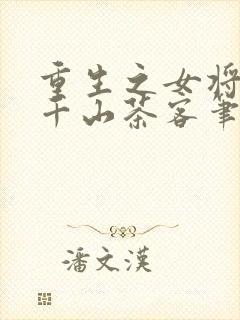 重生之女将
千山茶客筆
潘文漢